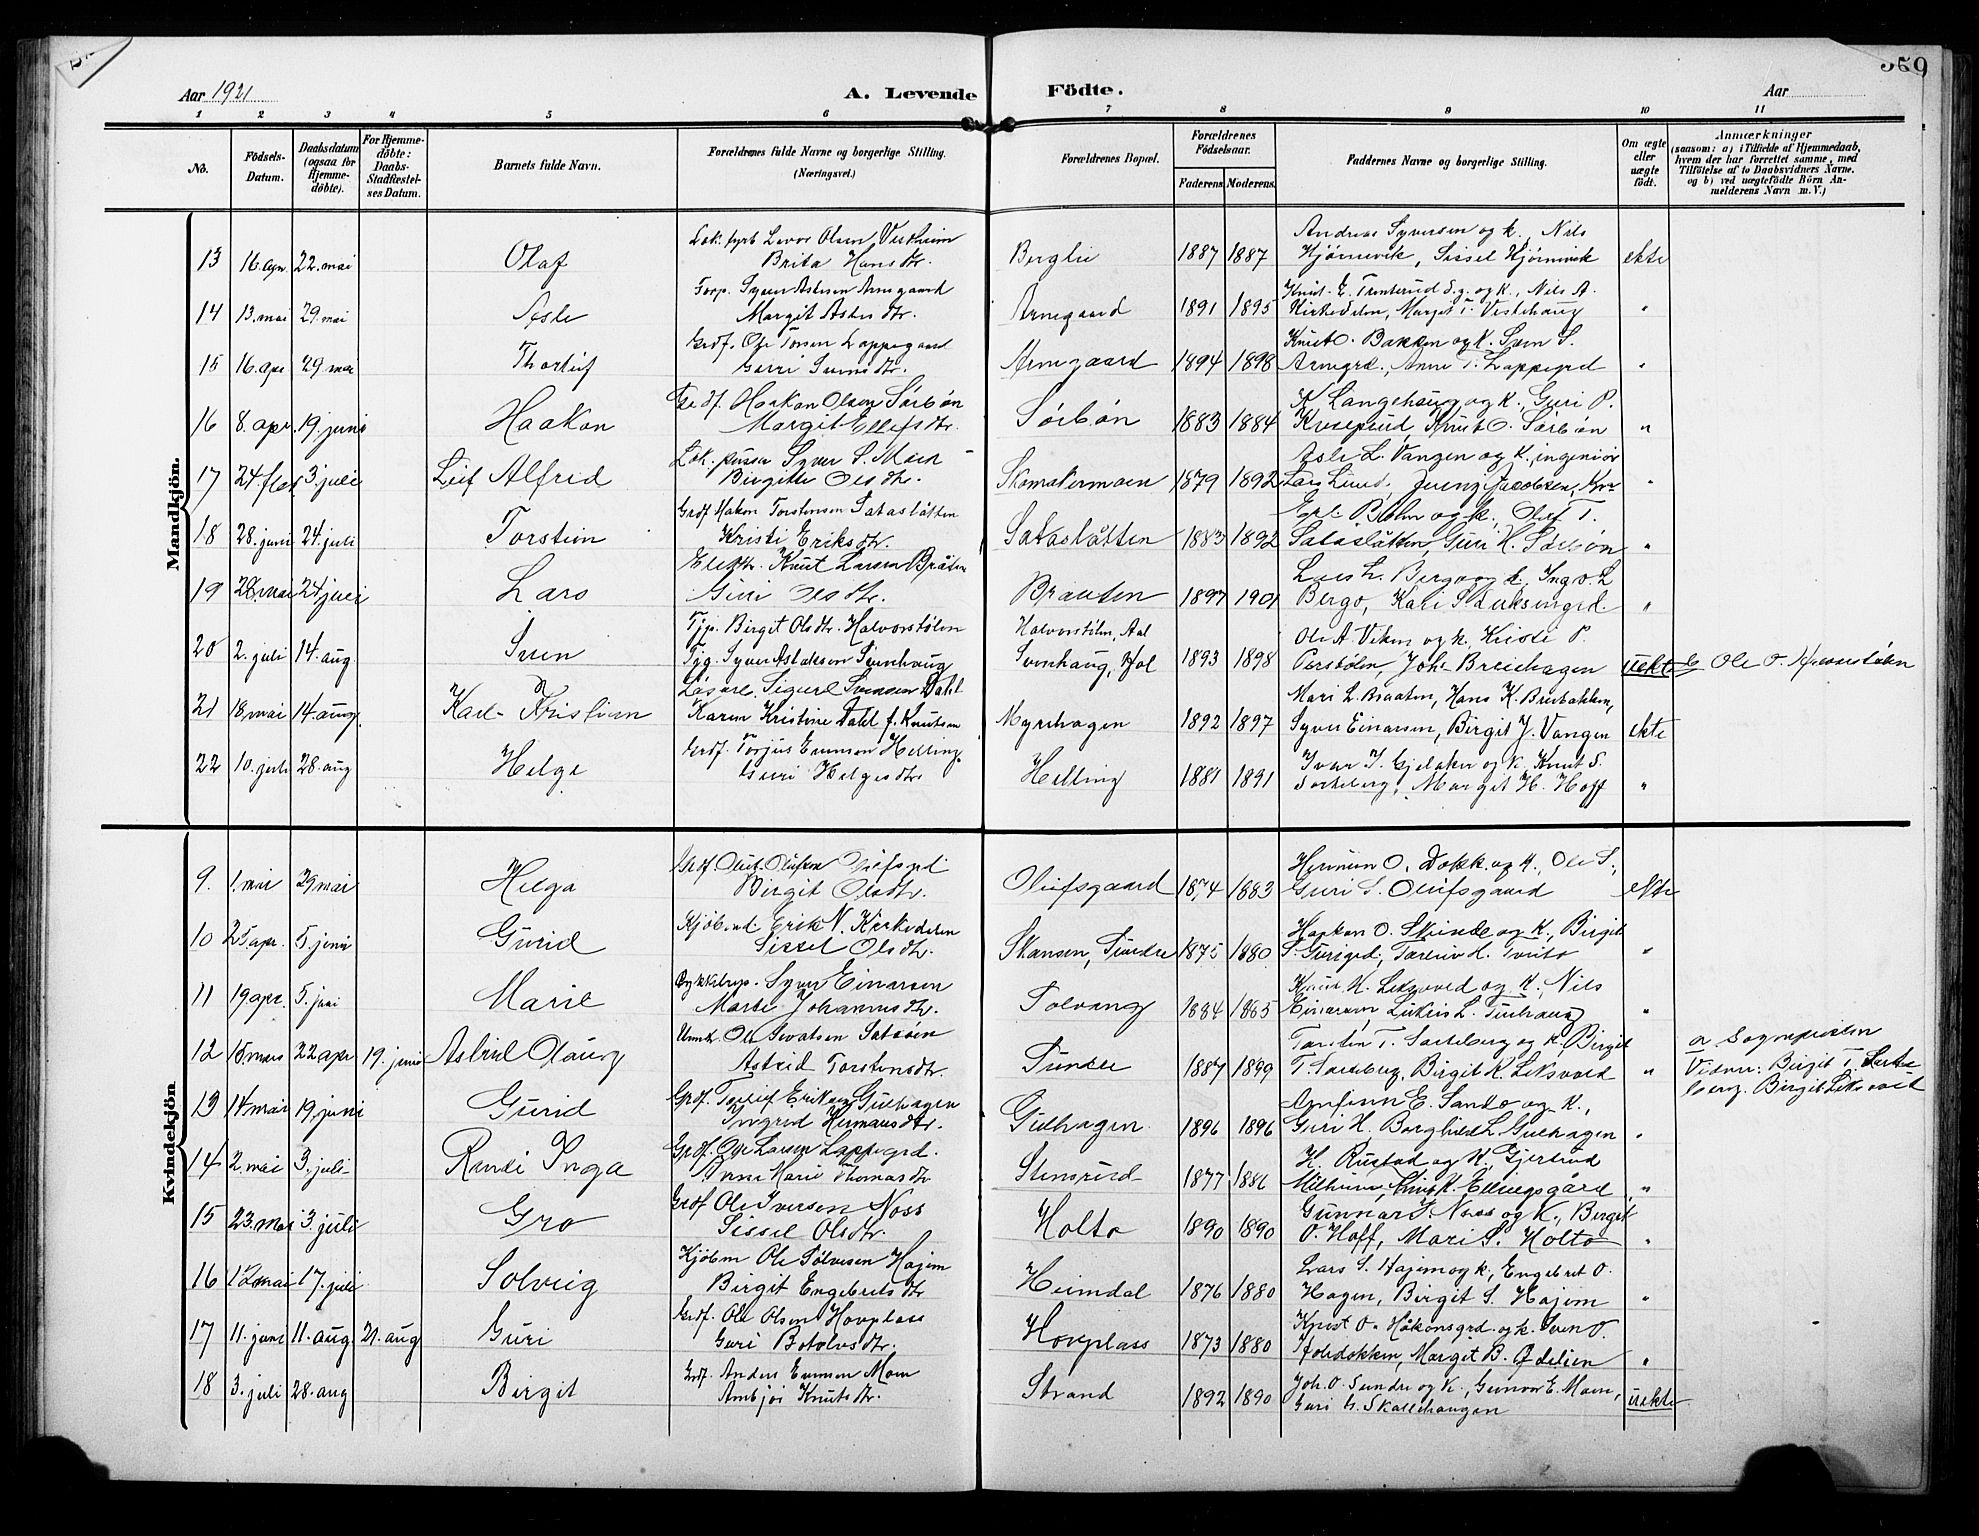 Aar 1921
A. Levende Födte.
Aar
369
1 2 3 4 5 6 7 8 9 10 11
No.
Födsels-Datum.
Daabsdatum (ogsaa for Hjemmedöbte).
For Hjemmedöbte: Daabs-Stadfæstelses Datum.
Barnets fulde Navn.
Forældrenes fulde Navne og borgerlige Stilling. (Næringsvei.)
Forældrenes Bopæl.
Forældrenes Födselsaar.
Faderens Moderens
Faddernes Navne og borgerlige Stilling.
Om ægte eller uægte födt.
Anmærkninger (saasom: a) i Tilfælde af Hjemmedaab, hvem der har forrettet samme, med Tilföielse af to Daabsvidners Navne. og b) ved uægtefödte Börn Anmelderens Navn m. V.)
Mandkjön.
13 16. apr. 22. mai Olaf Olsen Vestheim Brita Hansdtr. Berglie 1887 1887 Andreas Syversen og k., Nils Hjørnevik, Sissel Hjørnevik ekte
14 13. mai 29. mai Asle Syver Aslesen Arnegaard Margit Aslesdtr. Arnegaard 1891 1895 Knut E. Trinterud s.g. og k., Nils A. Kirkedelen, Margit T. Vestehaug "
15 16. apr 29. mai Thorleif Grdf. Ole Torsen Lappegaard Guri Svensdtr. Arnegaard 1894 1898 Knut O. Bakken og k. Sven S. Arnegrd., Anne T. Lappegrd "
16 8. apr. 19. juni Haakon Grdf. Haakon Olsen Sørbøn Margit Ellefsdtr. Sørbøn 1883 1884 K. Langehaug og k., Guri P. Knut O. Sørbøn "
17 24. 3. juli Leif Alfred Lok. pusser Syver S. Moen Birgitte Olsdtr. Skomakermoen 1879 1892 Asle L. Vangen og k., ingeniør Lars Lund, Jacobsen, "
18 28. juni 24. juli Torstein Grdf Hakon Torstensen Sataslåtten Kristi Eriksdtr. Sataslåtten 1883 1892 og k., Olef T. Sataslåtten, Guri H. Sørbøn "
19 28. mai 24 juli Lars Elektr. Knut Larsen Bråten Guri Olsdtr. Braaten 1897 1901 Lars L. Bergo og k., Ingv. L Bergo, Kari S. "
20 2. juli 14. aug. Svein Tjp. Birgit Olsdtr. Halvorstølen Tjg. Syver Aslaksen Svenhaug Halvorstølen, Aal Svenhaug, Hol 1893 1898 Ole A. Viken og k. Kristi P. Perstølen, Joh. Breiehagen uekte b Ole O.
21 18. mai 14. aug. Karl Kristian Løsarb. Sigurd Svensen Dahl Karen Kristine Dahl f. Knutsen Myrehagen 1892 1897 Mari L. Braaten, Hans K. Brubakken, Syver Einarsen, Birgit J. Vangen ekte
22 10. juli 28. aug Helge Grdf. Torjus Evensen Helling Guri Helgesdtr Helling 1881 1891 Ivar I. Gjelaker og k. Knut S. Sorteberg, Margit H. Hoff "
Kvindekjön
9. 1. mai 29 mai Helga Grdf. Olufsgrd Birgit Olsdtr. Olufsgaard 1874 1883 Herman O. Dokk. og k., Ole S., Guri S. Olufsgaard ekte
10 25 apr. 5. juni Gurid Kjøbmd Erik N. Kirkedelen Sissel Olsdtr. Skansen, Sundre 1875 1880 Haakon O. Skinde og k., Birgit S. Gurigrd, L. Tveito "
11 19 apr. 5. juni Marie Syver Einarsen Marte Johannesdtr. Solvang 1884 1885 Knut K. Leksvold og k., Nils Einarsen, L. "
12 15. mars 22 apr 19. juni Astrid Astrid Torstensdtr. Sundre 1887 1899 Torsten T. Sorteberg og k, Birgit T. Sorteberg, Birgit K. Leksvold " a Sogneprsten Vidner: Birgit T. Sorteberg. Birgit Leksvold
13 14 mai 19. juni Gurid Grdf. Torleif Eriksen Gulhagen Ingrid Hermansdtr. Gulhagen 1896 1896 Arnfinn E. Sando og k., Guri H, Borghild L Gulhagen "
14 2. mai 3. juli Randi Inga Grdf. Ole Larsen Lappegrd. Anne Marie Thomasdtr Stensrud 1877 1886 H. Rustad og k. Gjertrud K. Ellingsgård "
15 23. mai 3. juli Gro Grdf Ole Iversen Noss Sissel Olsdtr. Holto 1890 1890 Gunnar I. Noss og k., Birgit O. Hoff, Mari S. Holto "
16 12 mai 17. juli Solveig Kjøbm Ole Sølvesen Hajem Birgit Engebretsdtr Heimdal 1876 1880 Lars S. Hajem og k, Engebret O. Hagen, Birgit S. Hajem "
17 11. juni 11. aug 21. aug Guri Grdf. Ole Olsen Hovplass Guri Botolvsdtr. Hovplass 1873 1880 Knut O. Håkonsgrd. og k. Sven O. Holedokken, Margit B. Ødelien "
18 3. juli 28. aug Birgit Grdf. Anders Evensen Moen Ambjør Knutsdtr. Strand 1892 1890 Joh. O. Sundre og k., Gunvor E. Moen, Guri H. Skallehaugen uekte